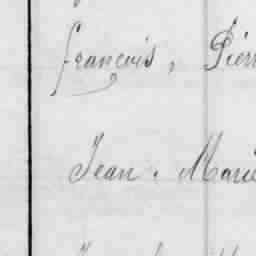 françois, Pierr
Jean. Marie